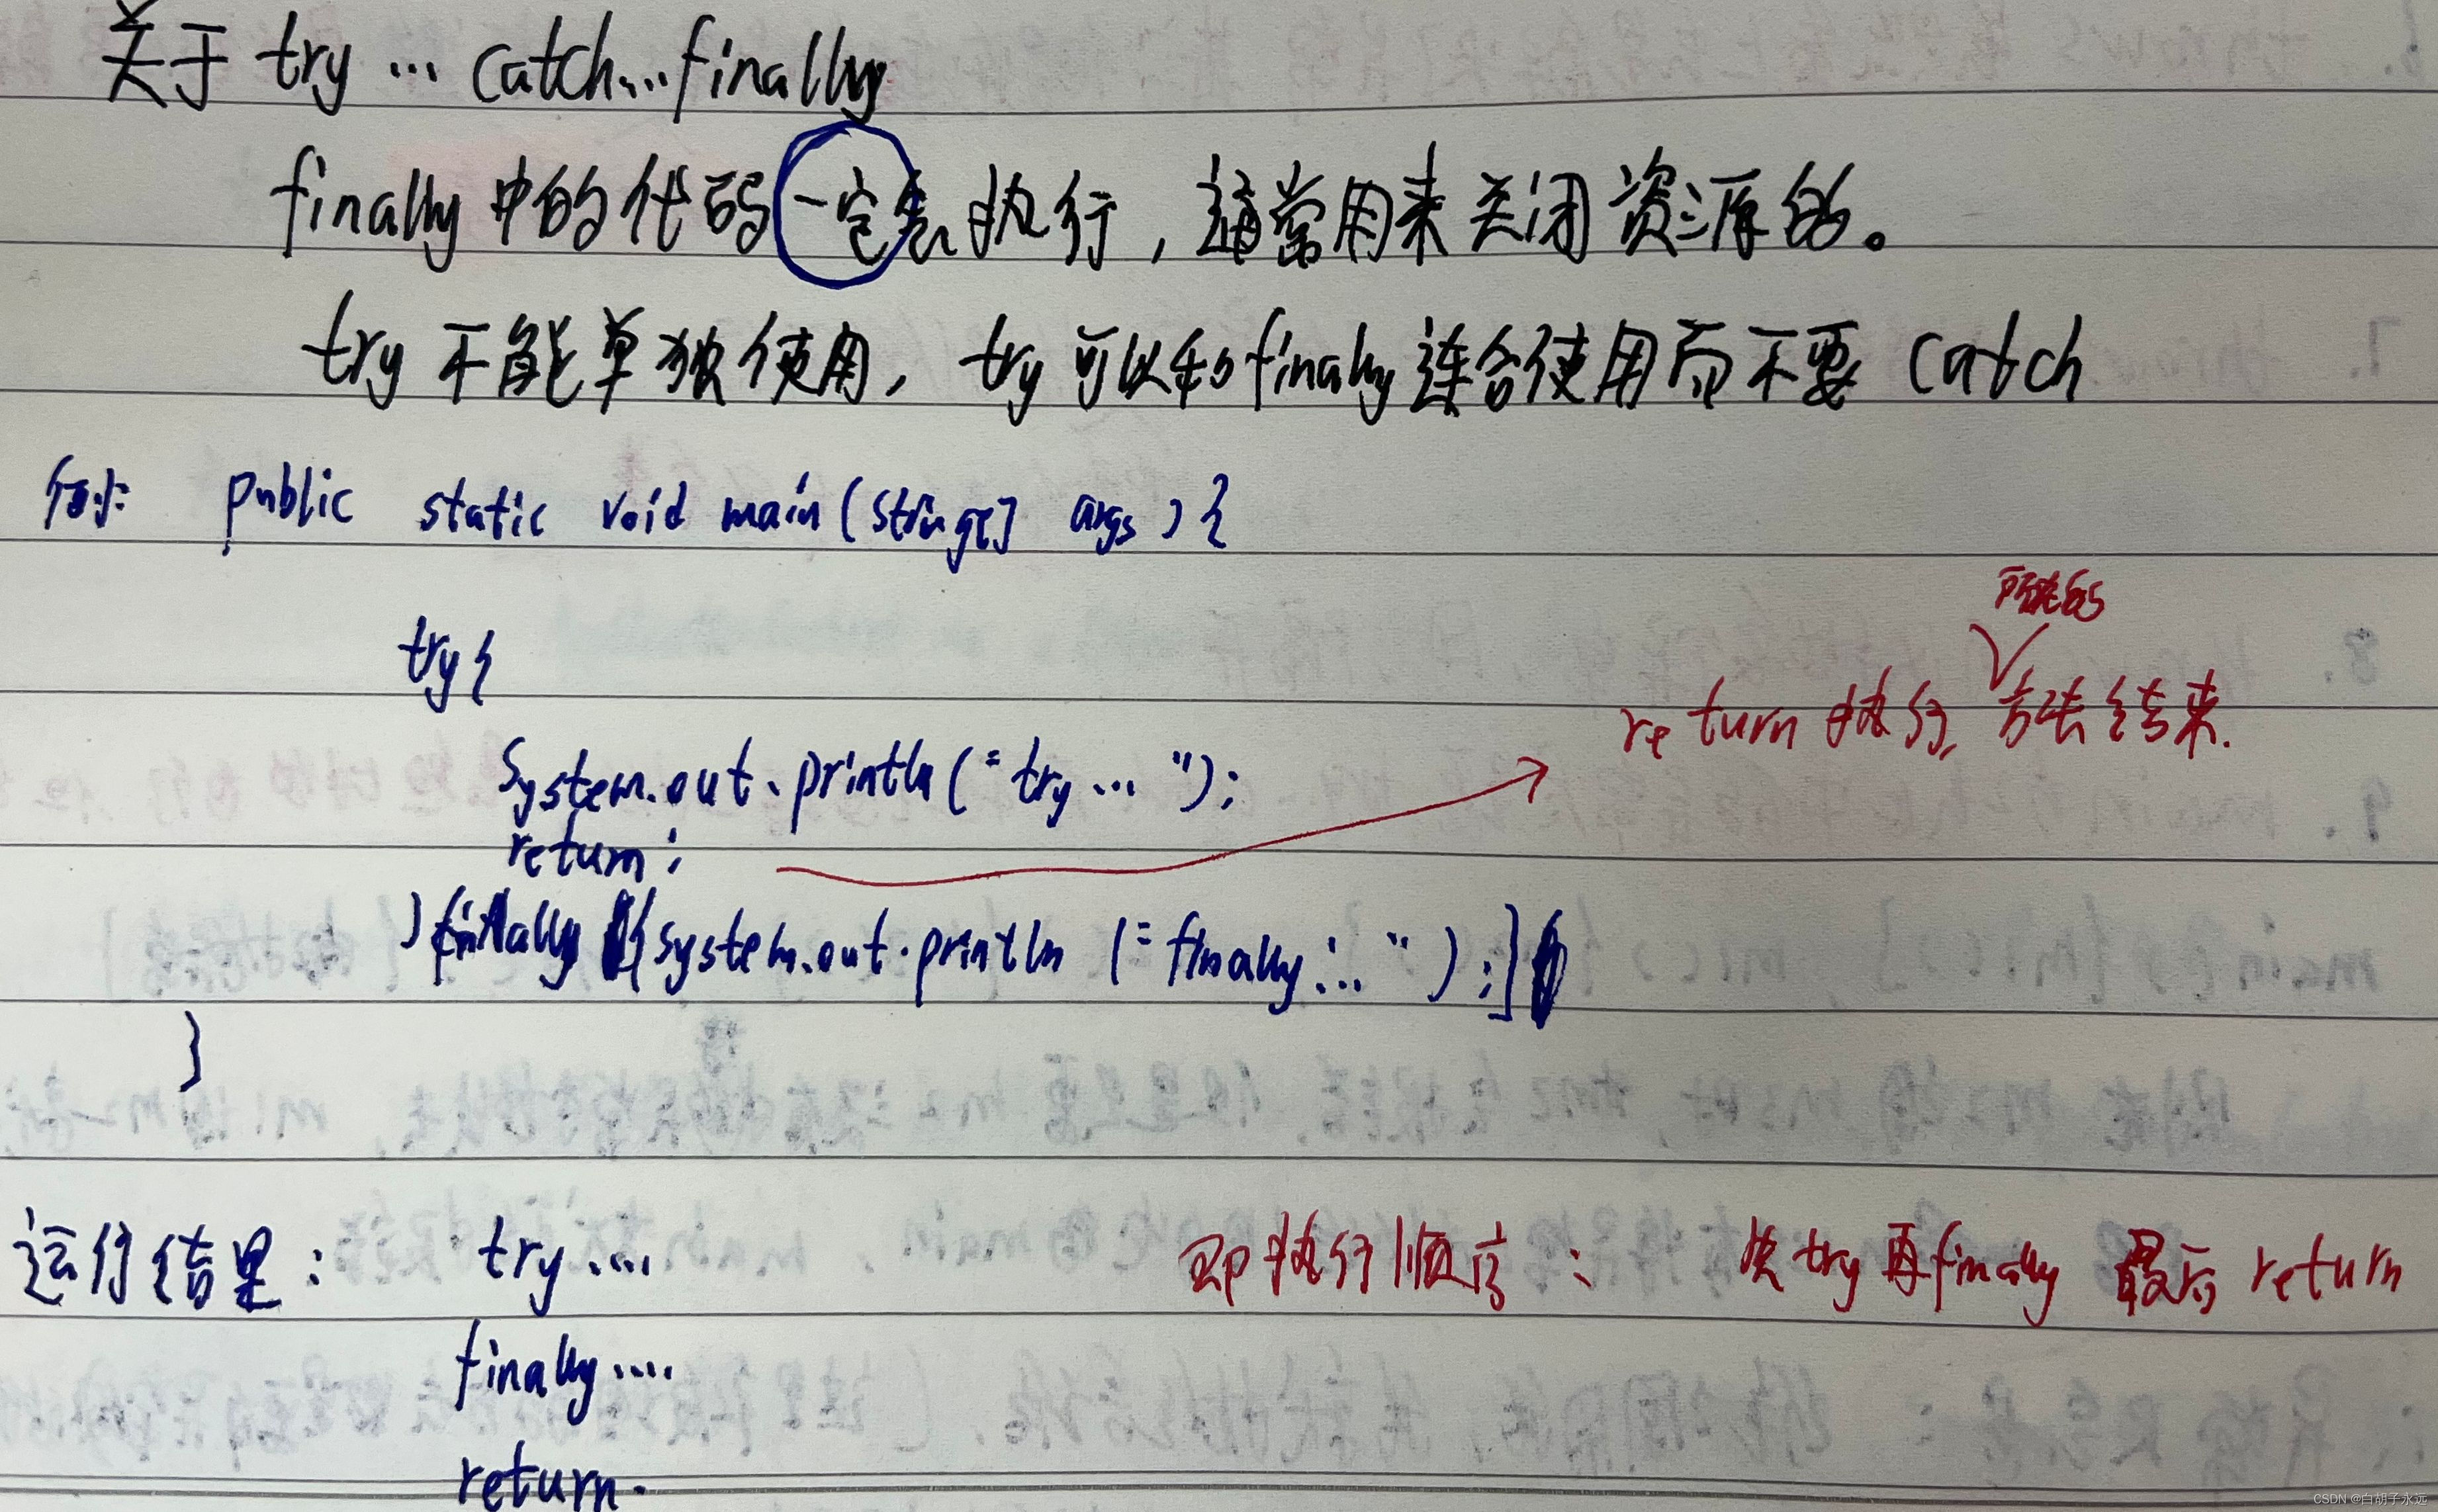 关于 try ... catch...finally
finally 中的代码一定会执行，通常用来关闭资源的。
try 不能单独使用，try 可以和finally 连合使用而不要 catch
例: public static void main(string[] args){
try{
所在的
return 执行, 方法结束.
System.out.println("try ... ");
return;
}finally {system.out.println ("finally ... ");}
}
运行结果: try ....
即执行顺序: 先 try 再finally 最后 return
finally ....
return.
CSDN @白胡子永远